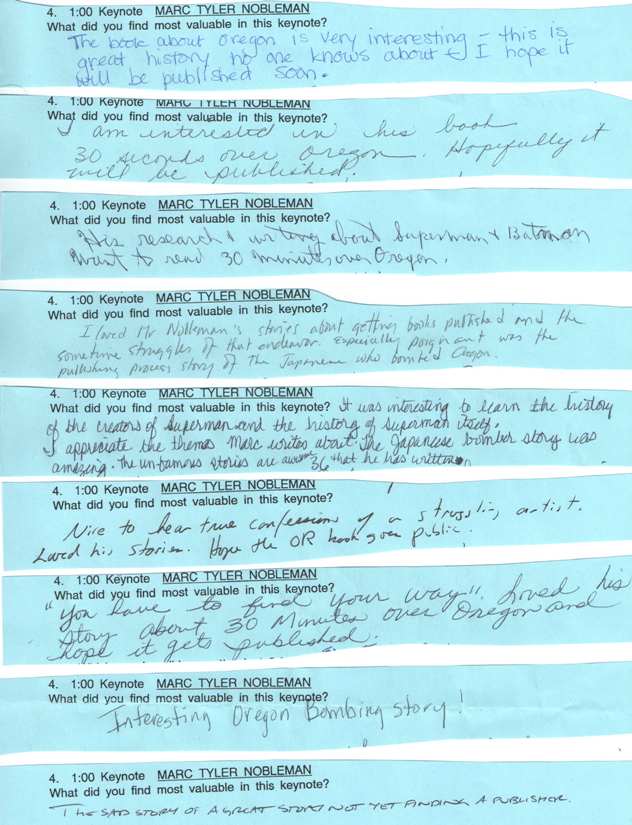 4. 1:00 Keynote MARC TYLER NOBLEMAN
What did you find most valuable in this keynote?
The book about Oregon is very interesting – this is
great history no one knows about & I hope it
will be published soon.
4. 1:00 Keynote MARC TYLER NOBLEMAN
What did you find most valuable in this keynote?
I am interested in his book
30 seconds over Oregon. Hopefully it
will be published.
4. 1:00 Keynote MARC TYLER NOBLEMAN
What did you find most valuable in this keynote?
His research & writing about Superman & Batman
Want to read 30 minutes over Oregon.
4. 1:00 Keynote MARC TYLER NOBLEMAN
What did you find most valuable in this keynote?
I loved Mr Nobleman's stories about getting books published and the
sometime struggles of that endeavor. Especially poignant was the
publishing process story of the Japanese who bombed Oregon.
4. 1:00 Keynote MARC TYLER NOBLEMAN
What did you find most valuable in this keynote? It was interesting to learn the history
of the creators of Superman and the history of Superman itself.
I appreciate the themes Marc writes about. The Japanese bomber story was
amazing. The unfamous stories are that he has written
4. 1:00 Keynote MARC TYLER NOBLEMAN
What did you find most valuable in this keynote?
Nice to hear true confessions of a struggling artist.
Loved his stories. Hope the OR book goes public.
4. 1:00 Keynote MARC TYLER NOBLEMAN
What did you find most valuable in this keynote?
"You have to find your way". Loved his
story about 30 Minutes over Oregon and
hope it gets published.
4. 1:00 Keynote MARC TYLER NOBLEMAN
What did you find most valuable in this keynote?
Interesting Oregon Bombing story!
4. 1:00 Keynote MARC TYLER NOBLEMAN
What did you find most valuable in this keynote?
THE SAD STORY OF A GREAT STORY NOT YET FINDING A PUBLISHER.